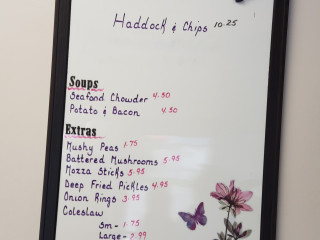 Haddock & Chips 10.25
Soups
Seafood Chowder 4.50
Potato & Bacon 4.50
Extras
Mushy Peas 1.75
Battered Mushrooms 5.95
Mozza Sticks 5.95
Deep Fried Pickles 4.95
Onion Rings 3.95
Coleslaw
Sm - 1.75
Large - 2.99